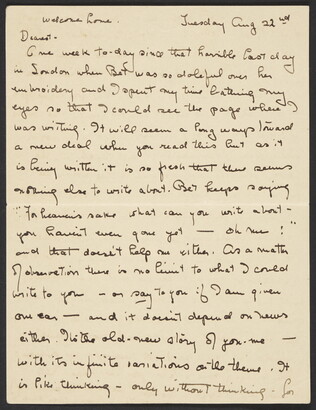 Welcome home. Tuesday Aug 22nd
Dearest -
One week to-day since that horrible last day
in London when Bet was so doleful over her
embroidery and I spent my time bathing my
eyes so that I could see the page where I
was writing. It will seem a long ways toward
a new deal when you read this but as it
is being written it is so fresh that there seems
nothing else to write about. Bet keeps saying
"For heaven's sake what can you write about -
you haven't even gone yet — oh me!"
and that doesn't help me either. As a matter
of observation there is no limit to what I could
write to you — or say to you if I am given
one ear — and it doesn't depend on news
either. It's the old-new story of you-me —
with its infinite variations on the theme. It
is like thinking — only without thinking - for